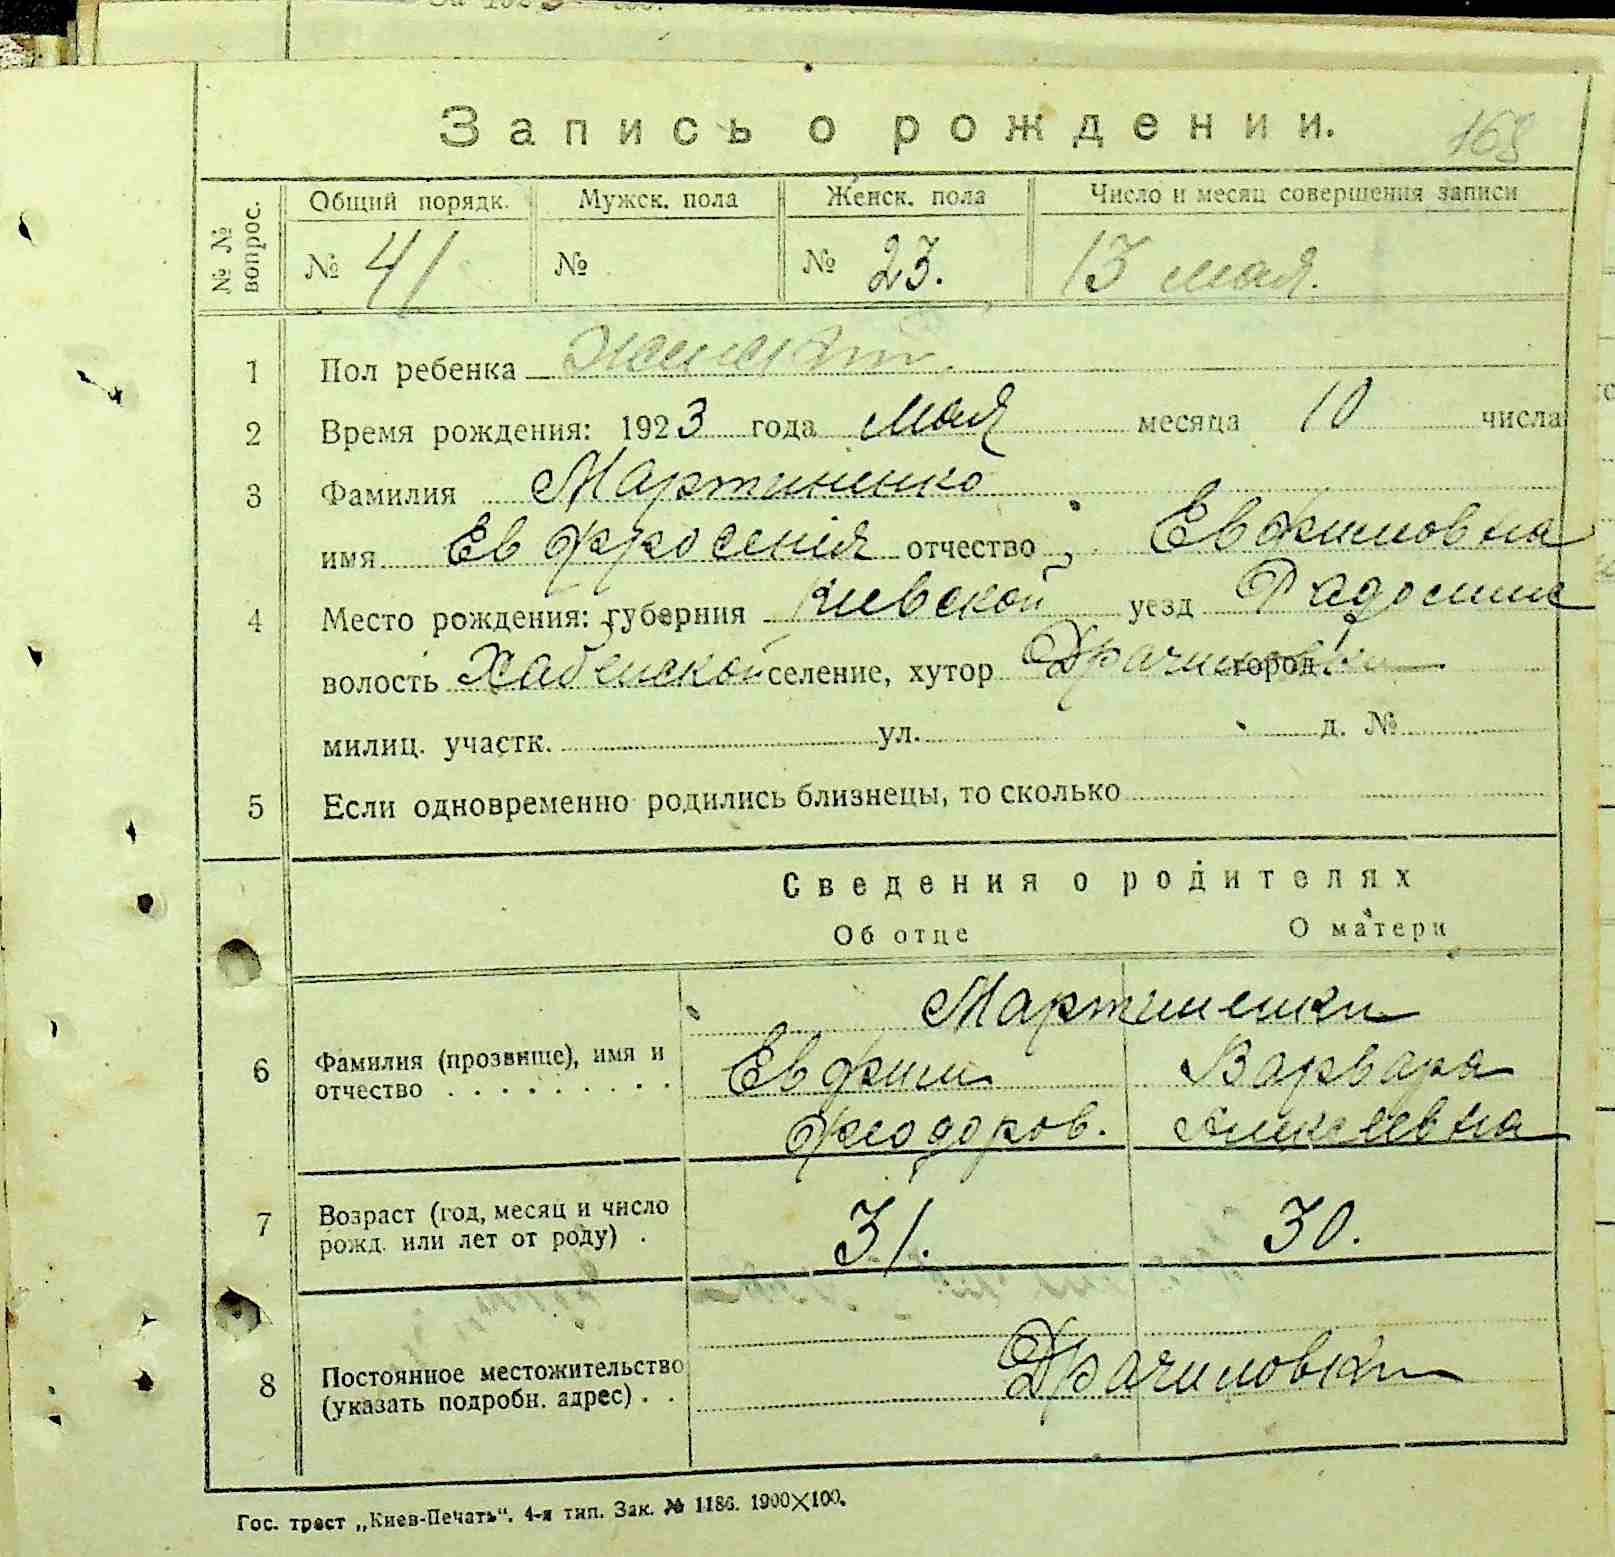 Запись о рождении.
168
№ № вопрос.
Общий порядк. Мужск. пола Женск. пола Число и месяц совершения записи
№ 41 № № 23. 13 мая.
1 Пол ребенка женский
2 Время рождения: 1923 года мая месяца 10 числа
3 Фамилия Мартиненко
имя Евфросенія отчество Евфимовна
4 Место рождения: губерния Киевской уезд Радомисл
волость Хабенской селение, хутор Драчиловки город
милиц. участк. ул. д. №
5 Если одновременно родились близнецы, то сколько
Сведения о родителях
Об отце О матери
Мартиненки
6 Фамилия (прозвище), имя и отчество Евфим Варвара
Феодоров. Алексеевна
7 Возраст (год, месяц и число рожд. или лет от роду) . 31. 30.
8 Постоянное местожительство (указать подробн. адрес) . . Драчиловки
Гос. трест „Киев-Печать“. 4-я тип. Зак. № 1186. 1900×100.